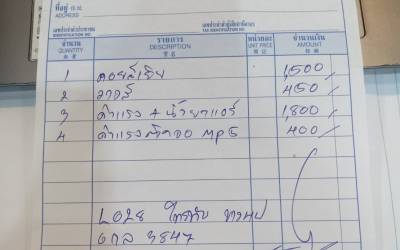 ที่อยู่ (住址)
ADDRESS
เลขประจำตัวประชาชน
IDENTIFICATION NO.
เลขประจำตัวผู้เสียภาษีอากร
TAX IDENTIFICATION NO.
จำนวน รายการ หน่วยละ จำนวนเงิน
QUANTITY DESCRIPTION UNIT PRICE AMOUNT
1 คอยล์เย็น 1,500/
2 วาล์ว 450/
3 ค่าแรง + น้ำยาแอร์ 1,800/
4 ค่าแรง MPG 400/
LO28
3847